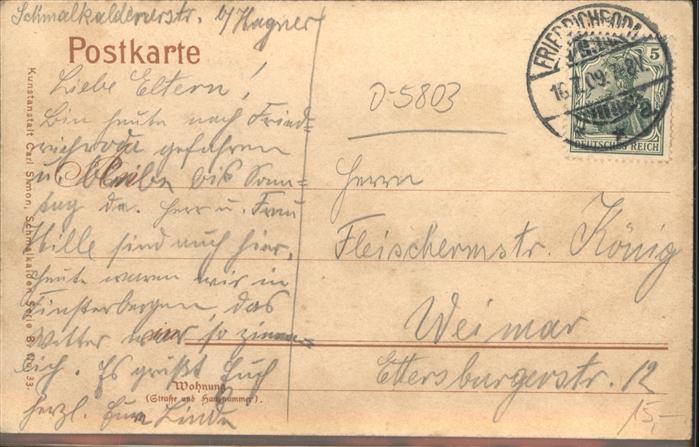 Schmalkaldenerstr. b/ Wagner
Postkarte
Liebe Eltern!
Bin heute nach Fried=
richroda gefahren
u. bleibe bis Sonn=
tag da. Herr u. Frau
Hille sind auch hier,
heute waren wir in
Finsterbergen, das
Wetter war so ziem=
lich. Es grüßt Euch
herzl. Eure Linda
D-5803
FRIEDRICHRODA
16.7.09.
5
DEUTSCHES REICH
Herrn
Fleischermstr. König
in
Weimar
Ettersburgerstr. 12
Wohnung
(Straße und Hausnummer).
15,-
Kunstanstalt Carl Simon, Schmalkalden Serie B. No. 33.